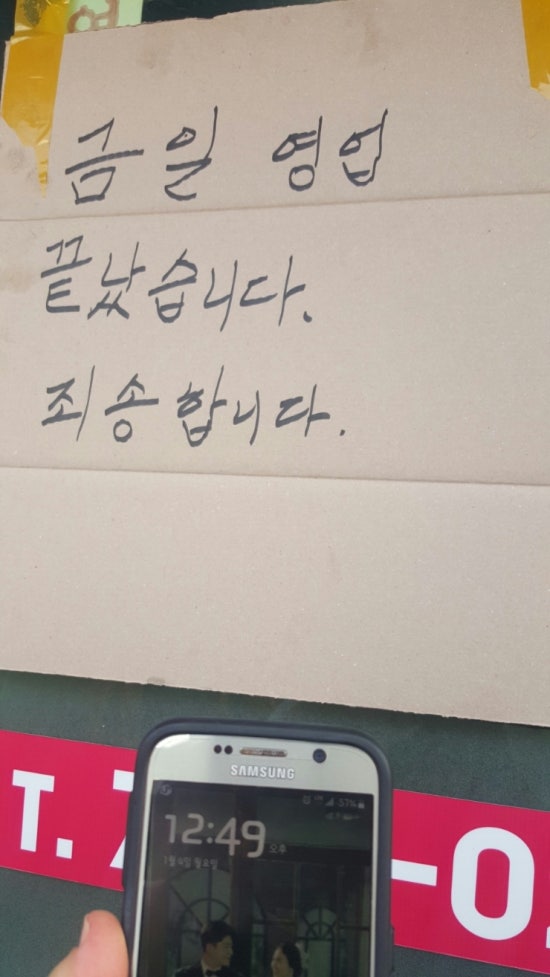 금일 영업
끝났습니다.
죄송합니다.
SAMSUNG
57%
12:49 오후
1월 4일 월요일
T. 7
-0